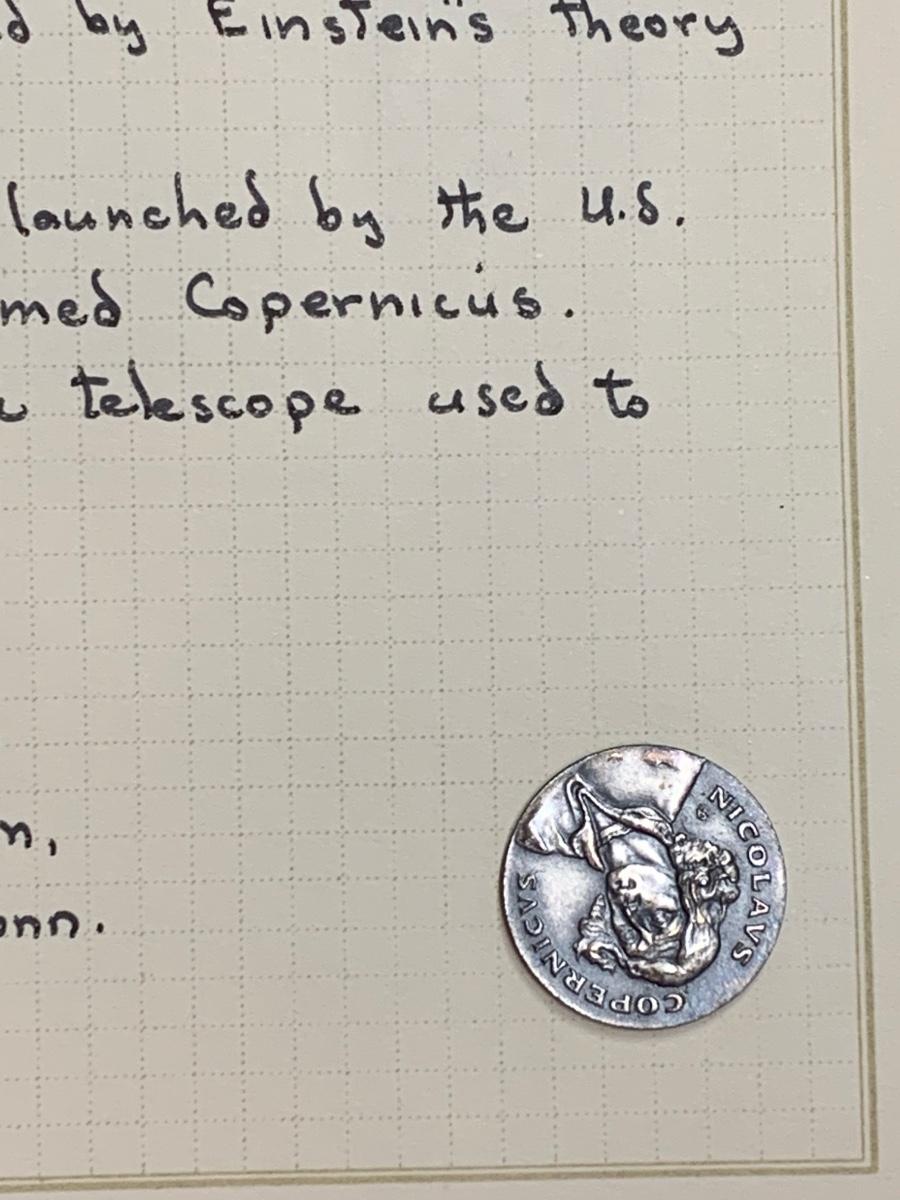 d by Einstein's theory
launched by the U.S.
med Copernicus.
telescope used to
n,
onn.
NICOLAVS
COPERNICVS